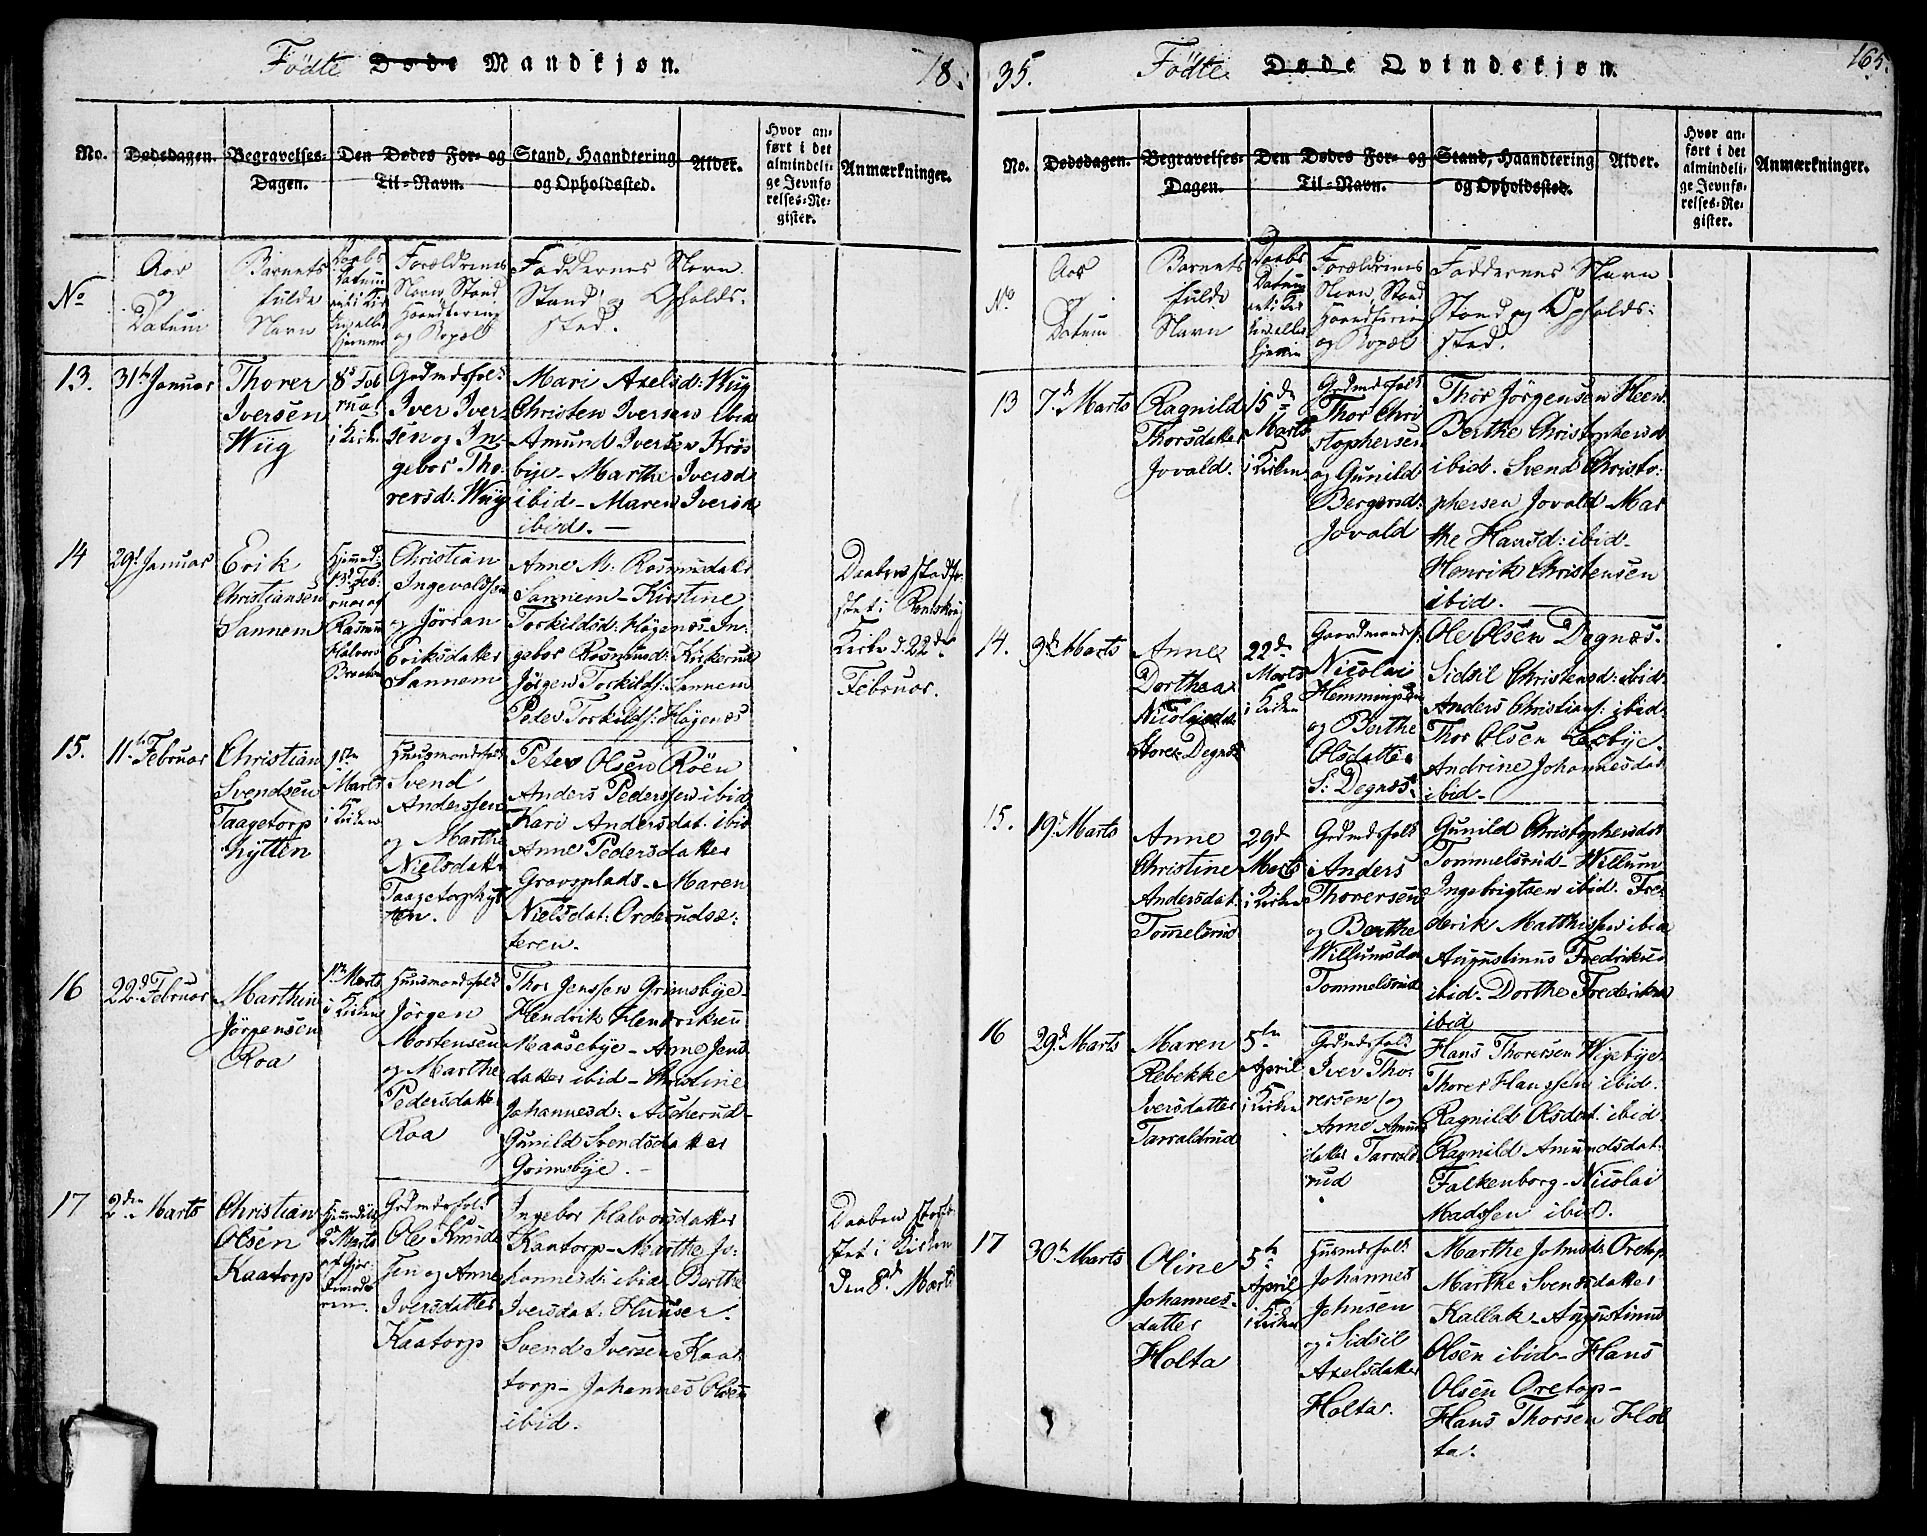 Födte Døde Mandkjøn. 18.
No.
Dødsdagen.
Begravelses-
Dagen.
Den Dødes For- og
Til-Navn.
Stand, Haandtering
og Opholdssted.
Alder.
Hvor an-
ført i det
almindeli-
ge Jevnfø
relses-Re-
gister.
Anmærkninger.
No
Aar
og
Datum
Barnets
fulde
Navn
Daabs
Datum
Forældrenes
Navn, Stand
Haandtering
og Bopæl
Faddernes Navn
Stand og Opholds-
sted.
13.
31te Januar
Thorer
Iversen
Wiig
8de Feb
rua
i Kirken
Grdmdsfolk
Iver Iver-
sen og In-
gebor Tho-
rersd: Wiig
Mari Axelsd: Wiig
Christen Iversen ibid
Amund Iversen Kros
bye - Marthe Iversd
ibid - Maren Iversd
ibid. -
14
29d Januar
Erik
Christiansen
Sannem
Hjemmed:
13d Feb:
ruar af
Rasmus
Halvors
Braaten
Christian
Ingevaldsen
og Jöran
Eriksdatter
Sannem
Anne M: Rasmusdatter
Sannem - Kirstine
Torkildsd: Högenæs - In-
gebor Rasmusd: Kirkerud
Jörgen Torkilds: Sannem
Peter Torkilds: Högenæs
Daaben stadfæ-
stet i
Kirke d: 22de
Februar.
15.
11te Februar
Christian
Svendsen
Taagetorp
hytten
1ste
Marts
i Kirken
Huusmandsfolk
Svend
Anderssen
og Marthe
Nielsdatter
Taagetorphyt
ten.
Peter Olsen Röen
Anders Pederssen ibid
Kari Andersdat. ibid
Anne Pedersdatter
Gravsplads - Maren
Nielsdat: Orderudsæ-
teren.
16
22d Februar
Marthin
Jörgensen
Roa
1ste Marts
i Kirken
Huusmandsfolk
Jörgen
Mortensen
og Marthe
Pedersdatter
Roa
Thor Jenssen Grimsbye -
Hendrik Hendriksen
Maasebye - Anne Jens
datter ibid - Christine
Johannesd: Ascherud -
Gunild Svendsdatter
Grimsbye. -
17
2den Marts
Christian
Olsen
Kaatorp
Marts
Grdmdsfolk
Ole Knud
sen og Anne
Iversdatter
Kaatorp
Ingebor Halvorsdatter
Kaatorp - Marthe Jo-
hannesd: ibid. Berthe
Iversdat: Huuser.
Svend Iversen Kaa-
torp - Johannes Olsen
ibid.
Daaben stadfæ-
stet i Kirken
den 8d. Marts
35. Födte Døde Qvindekjøn. 165.
No.
Dødsdagen.
Begravelses-
Dagen.
Den Dødes For- og
Til-Navn.
Stand, Haandtering
og Opholdssted.
Alder.
Hvor an-
ført i det
almindeli-
ge Jevnfø-
relses-Re-
gister.
Anmærkninger.
No
Aar
Datum
Barnets
fulde
Navn
Daabs
Datum
Forældrenes
Navn, Stand
Haandtering
og Bopæl
Faddernes Navn
Stand og Opholds-
sted.
13
7d Marts
Ragnild
Thorsdatter
Jovald.
15de
Marts
i Kirken
Grdmdsfolk
Thor Chri
stophersen
og Gunild
Bergersd:
Jovald
Thor Jörgensen Heen
Berthe Christophersd
ibid. Svend Christo-
phersen Jovald - Mar
the Hansd: ibid -
Henrik Christensen
ibid. -
14.
9de Marts
Anne
Dorthea
Nicolaisdat.
Store Degnæs
22de
Marts
i Kirken
Gaardmandsf:
Nicolai
Hemmingsen
og Berthe
Olsdatter
S: Degnæs
Ole Olsen Degnæs.
Sidsil Christensd: ibid.
Anders Christians: ibid.
Thor Olsen Lesbye.
Andrine Johannesdat
ibid -
15.
19d Marts
Anne
Christine
Andersdat.
Tommelsrud
29d
Marts
i Kirken
Grdmdsfolk
Anders
Thorersen
og Berthe
Willumsdat
Tommelsrud
Gunild Christophersdat
Tommelsrud - Willum
Ingebrigtsen ibid. Fre-
derik Matthissen ibid
Augustinus Fredriksen
ibid - Dorthe Frederiksd
ibid
16
29d Marts
Maren
Rebekke
Iversdatter
Tarraldrud
5te
April
i Kirken
Grdmdsfolk
Iver Tho
rersen og
Anne Amunds
datter Tarrald
rud
Hans Thorersen Wigebye
Thorer Hanssen ibid.
Ragnild Olsdat. ibid
Ragnild Amundsdat.
Falkenborg - Nicolai
Madssen ibid.
17
30te Marts
Oline
Johannes-
datter
Holta
5te
April
i Kirken
Husmdsfolk
Johannes
Johnsen
og Sidsil
Axelsdatter
Holta.
Marthe Johnsd: Oretop
Marthe Svensdatter
Kallak - Augustinus
Olsen ibid - Hans
Olsen Oretop -
Hans Thorsen Hol
ta.